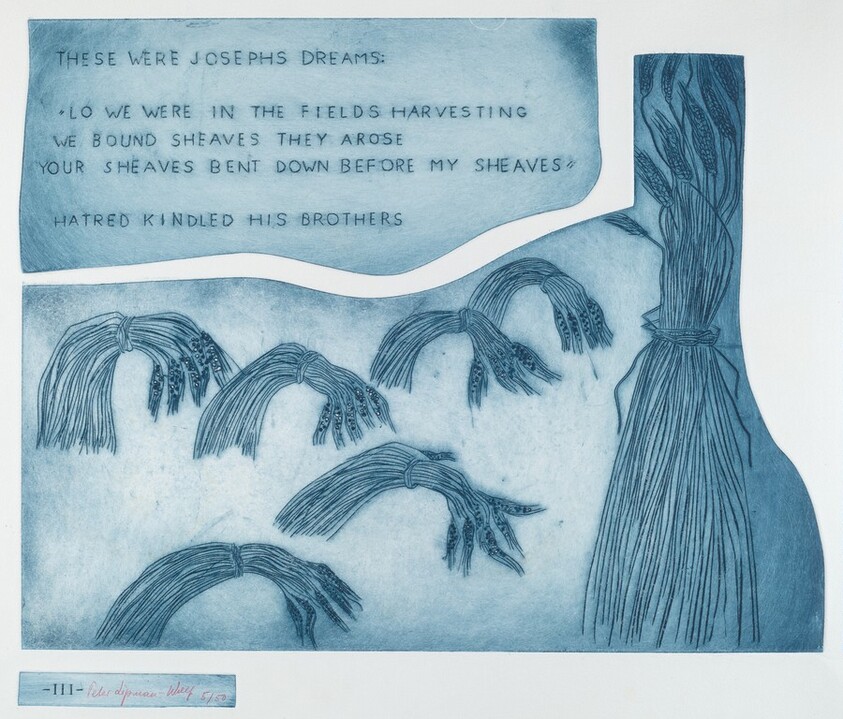 THESE WERE JOSEPHS DREAMS:
"LO WE WERE IN THE FIELDS HARVESTING
WE BOUND SHEAVES THEY AROSE
YOUR SHEAVES BENT DOWN BEFORE MY SHEAVES"
HATRED KINDLED HIS BROTHERS
-III- Peter Lipman-Wulf 5/50